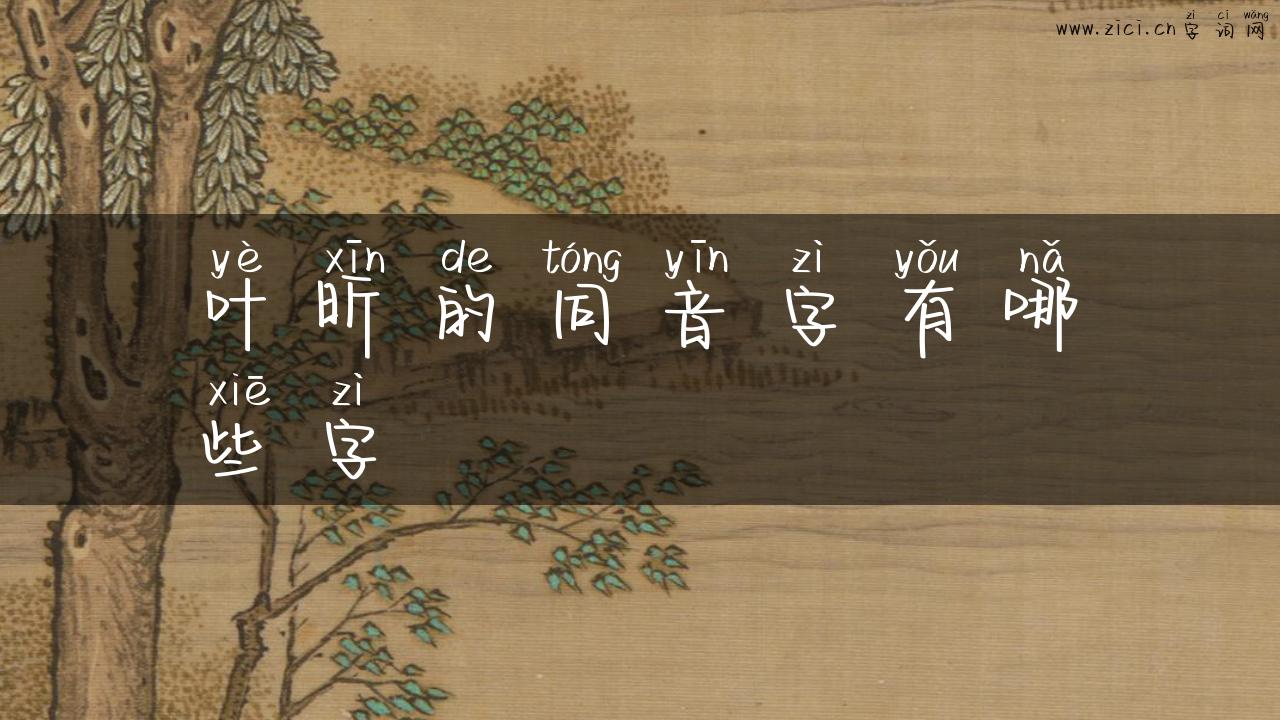 zì cí wǎng
www.zici.cn 字词网
yè xīn de tóng yīn zì yǒu nǎ
叶昕的同音字有哪
xiē zì
些字